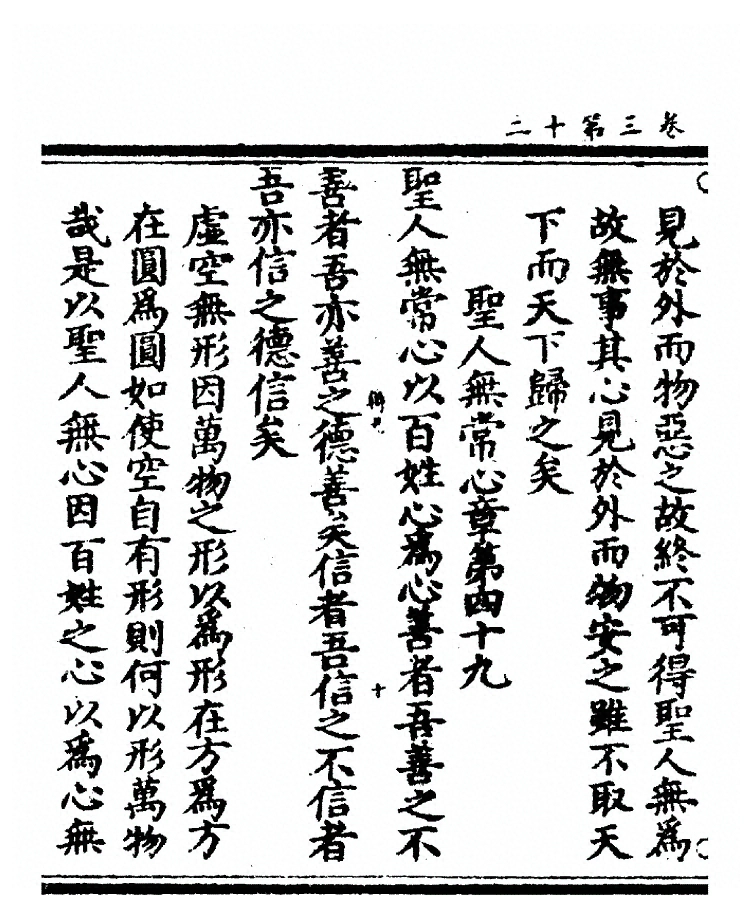 卷三第十二
見於外而物惡之故終不可得聖人無爲
故無事其心見於外而物安之雖不取天
下而天下歸之矣
聖人無常心章第四十九
聖人無常心以百姓心爲心善者吾善之不
善者吾亦善之德善矣信者吾信之不信者
十
吾亦信之德信矣
虛空無形因萬物之形以爲形在方爲方
在圓爲圓如使空自有形則何以形萬物
哉是以聖人無心因百姓之心以爲心無